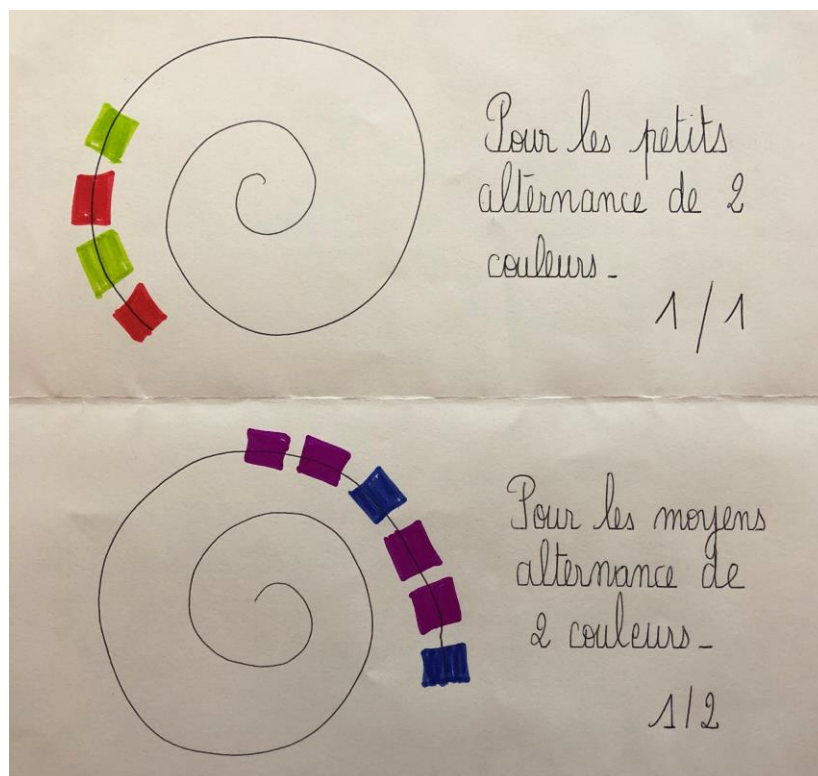 Pour les petits
alternance de 2
couleurs_
1/1
Pour les moyens
alternance de
2 couleurs_
1/2